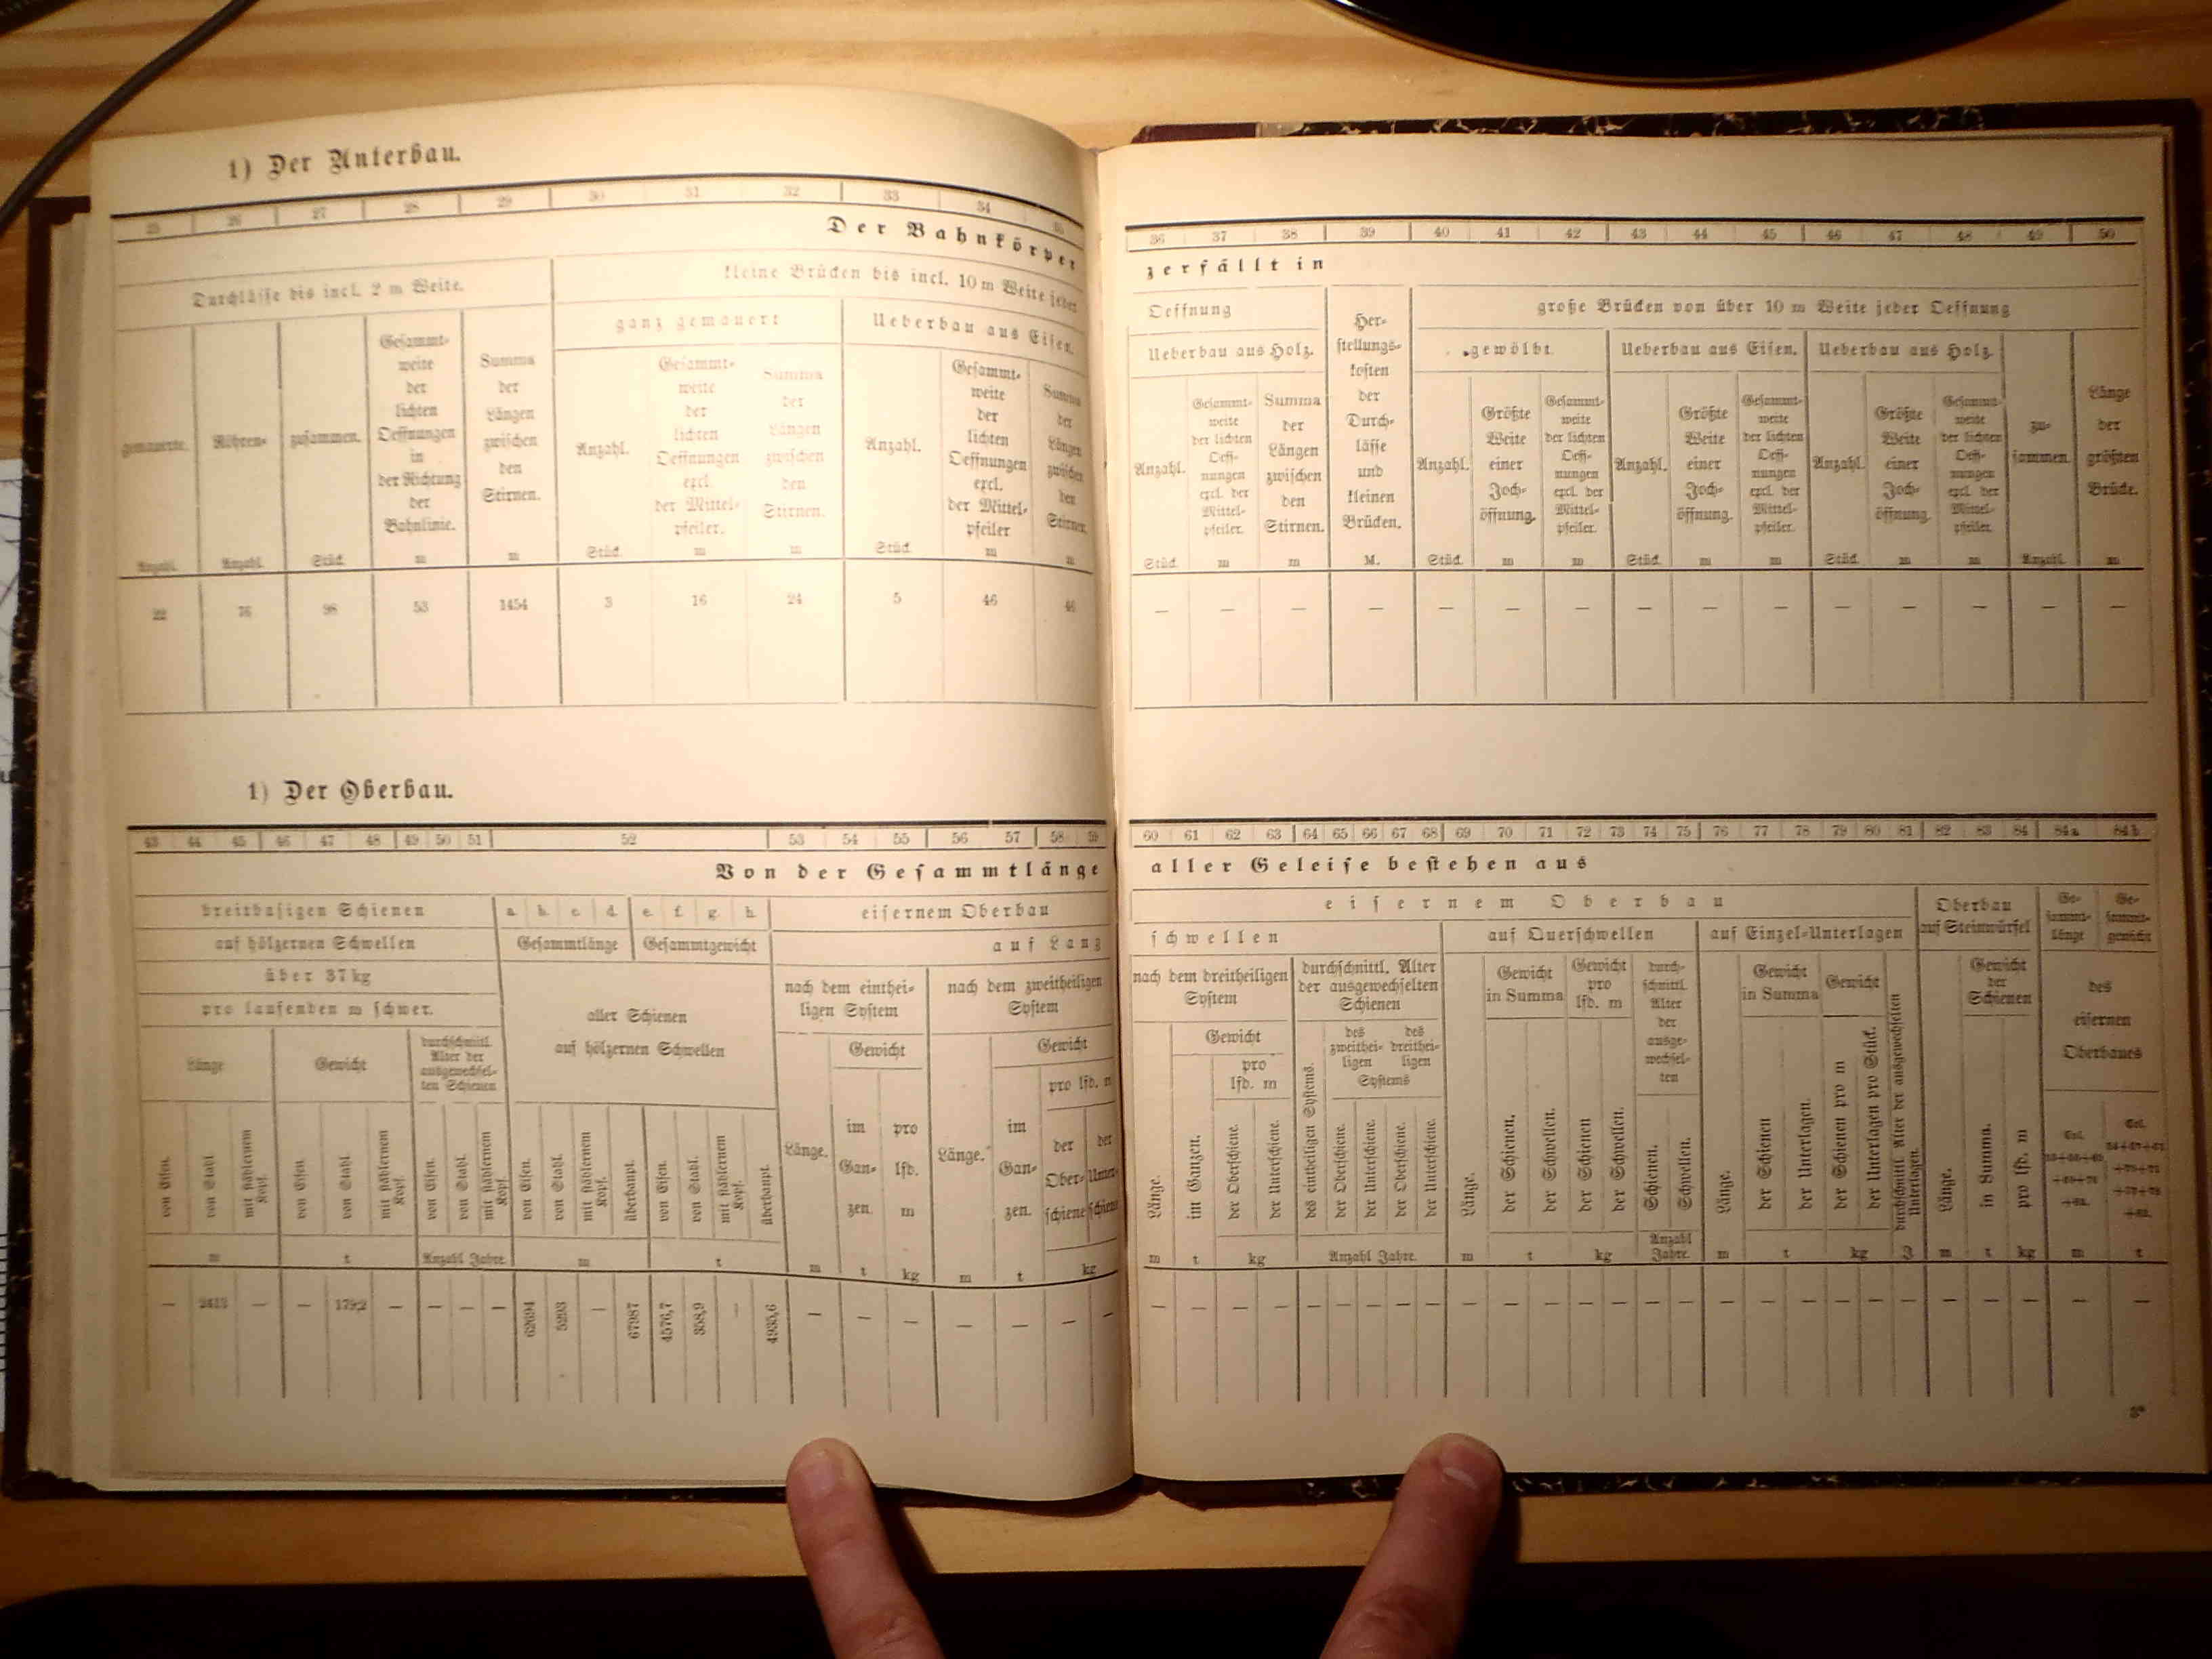 1) Der Unterbau.
25 26 27 28 29 30 31 32 33 34 35
Der Bahnkörper
Durchlässe bis incl. 2 m Weite.
kleine Brücken bis incl. 10 m Weite jeder
ganz gemauert
Ueberbau aus Eisen.
gemauerte.
Röhren-
zusammen.
Gesammt-
weite
der
lichten
Oeffnungen
in
der Richtung
der
Bahnlinie.
Summa
der
Längen
zwischen
den
Stirnen.
Anzahl.
Gesammt-
weite
der
lichten
Oeffnungen
excl.
der Mittel-
pfeiler.
Summa
der
Längen
zwischen
den
Stirnen.
Anzahl.
Gesammt-
weite
der
lichten
Oeffnungen
excl.
der Mittel-
pfeiler
Summa
der
Längen
zwischen
den
Stirnen.
Anzahl. Anzahl. Stück. m m Stück. m m Stück. m m
22 76 98 53 1454 3 16 24 5 46 46
1) Der Oberbau.
43 44 45 46 47 48 49 50 51 52 53 54 55 56 57 58 59
Von der Gesammtlänge
breitbasigen Schienen
a. b. c. d. e. f. g. h.
eisernem Oberbau
auf hölzernen Schwellen
Gesammtlänge
Gesammtgewicht
auf Lang
über 37 kg
pro laufenden m schwer.
aller Schienen
auf hölzernen Schwellen
nach dem einthei-
ligen System
nach dem zweitheiligen
System
Länge
Gewicht
durchschnittl.
Alter der
ausgewechsel-
ten Schienen
Gewicht
Gewicht
pro lfd. m
von Eisen.
von Stahl
mit stählernem
Kopf.
von Eisen.
von Stahl.
mit stählernem
Kopf.
von Eisen.
von Stahl.
mit stählernem
Kopf.
von Eisen.
von Stahl.
mit stählernem
Kopf.
überhaupt.
von Eisen.
von Stahl.
mit stählernem
Kopf.
überhaupt.
Länge.
im
Gan-
zen.
pro
lfd.
m
Länge.
im
Gan-
zen.
der
Ober-
schiene
der
Unter-
schiene
m t Anzahl Jahre. m t m t kg m t kg
— 2413 — — 179,2 — — — — 62694 5293 — 67987 4576,7 358,9 — 4935,6 — — — — — — —
36 37 38 39 40 41 42 43 44 45 46 47 48 49 50
zerfällt in
Oeffnung
große Brücken von über 10 m Weite jeder Oeffnung
Ueberbau aus Holz.
gewölbt.
Ueberbau aus Eisen.
Ueberbau aus Holz.
Anzahl.
Gesammt-
weite
der lichten
Oeff-
nungen
excl. der
Mittel-
pfeiler.
Summa
der
Längen
zwischen
den
Stirnen.
Her-
stellungs-
kosten
der
Durch-
lässe
und
kleinen
Brücken.
Anzahl.
Größte
Weite
einer
Joch-
öffnung.
Gesammt-
weite
der lichten
Oeff-
nungen
excl. der
Mittel-
pfeiler.
Anzahl.
Größte
Weite
einer
Joch-
öffnung.
Gesammt-
weite
der lichten
Oeff-
nungen
excl. der
Mittel-
pfeiler.
Anzahl.
Größte
Weite
einer
Joch-
öffnung.
Gesammt-
weite
der lichten
Oeff-
nungen
excl. der
Mittel-
pfeiler.
zu-
sammen.
Länge
der
größten
Brücke.
Stück. m m M. Stück. m m Stück. m m Stück. m m Anzahl. m
— — — — — — — — — — — — — — —
60 61 62 63 64 65 66 67 68 69 70 71 72 73 74 75 76 77 78 79 80 81 82 83 84 84a 84b
aller Geleise bestehen aus
eisernem Oberbau
Oberbau
auf Steinwürfel
Ge-
sammt-
länge
Ge-
sammt-
gewicht
schwellen
auf Querschwellen
auf Einzel-Unterlagen
nach dem dreitheiligen
System
durchschnittl. Alter
der ausgewechselten
Schienen
Gewicht
in Summa
Gewicht
pro
lfd. m
durch-
schnittl.
Alter
der
ausge-
wechsel-
ten
Gewicht
in Summa
Gewicht
Gewicht
der
Schienen
des
eisernen
Oberbaues
Gewicht
pro
lfd. m
des
zweithei-
ligen
des
dreithei-
ligen
Systems
Länge.
im Ganzen.
der Oberschiene.
der Unterschiene.
des eintheiligen Systems.
der Oberschiene.
der Unterschiene.
der Oberschiene.
der Unterschiene.
Länge.
der Schienen.
der Schwellen.
der Schienen
der Schwellen.
Schienen.
Schwellen.
Länge.
der Schienen
der Unterlagen.
der Schienen pro m
der Unterlagen pro Stück.
durchschnittl. Alter der ausgewechselten
Unterlagen.
Länge.
in Summa.
pro lfd. m
m t kg Anzahl Jahre. m t kg Anzahl
Jahre. m t kg J m t kg m t
— — — — — — — — — — — — — — — — — — — — — — — — — — —
3*